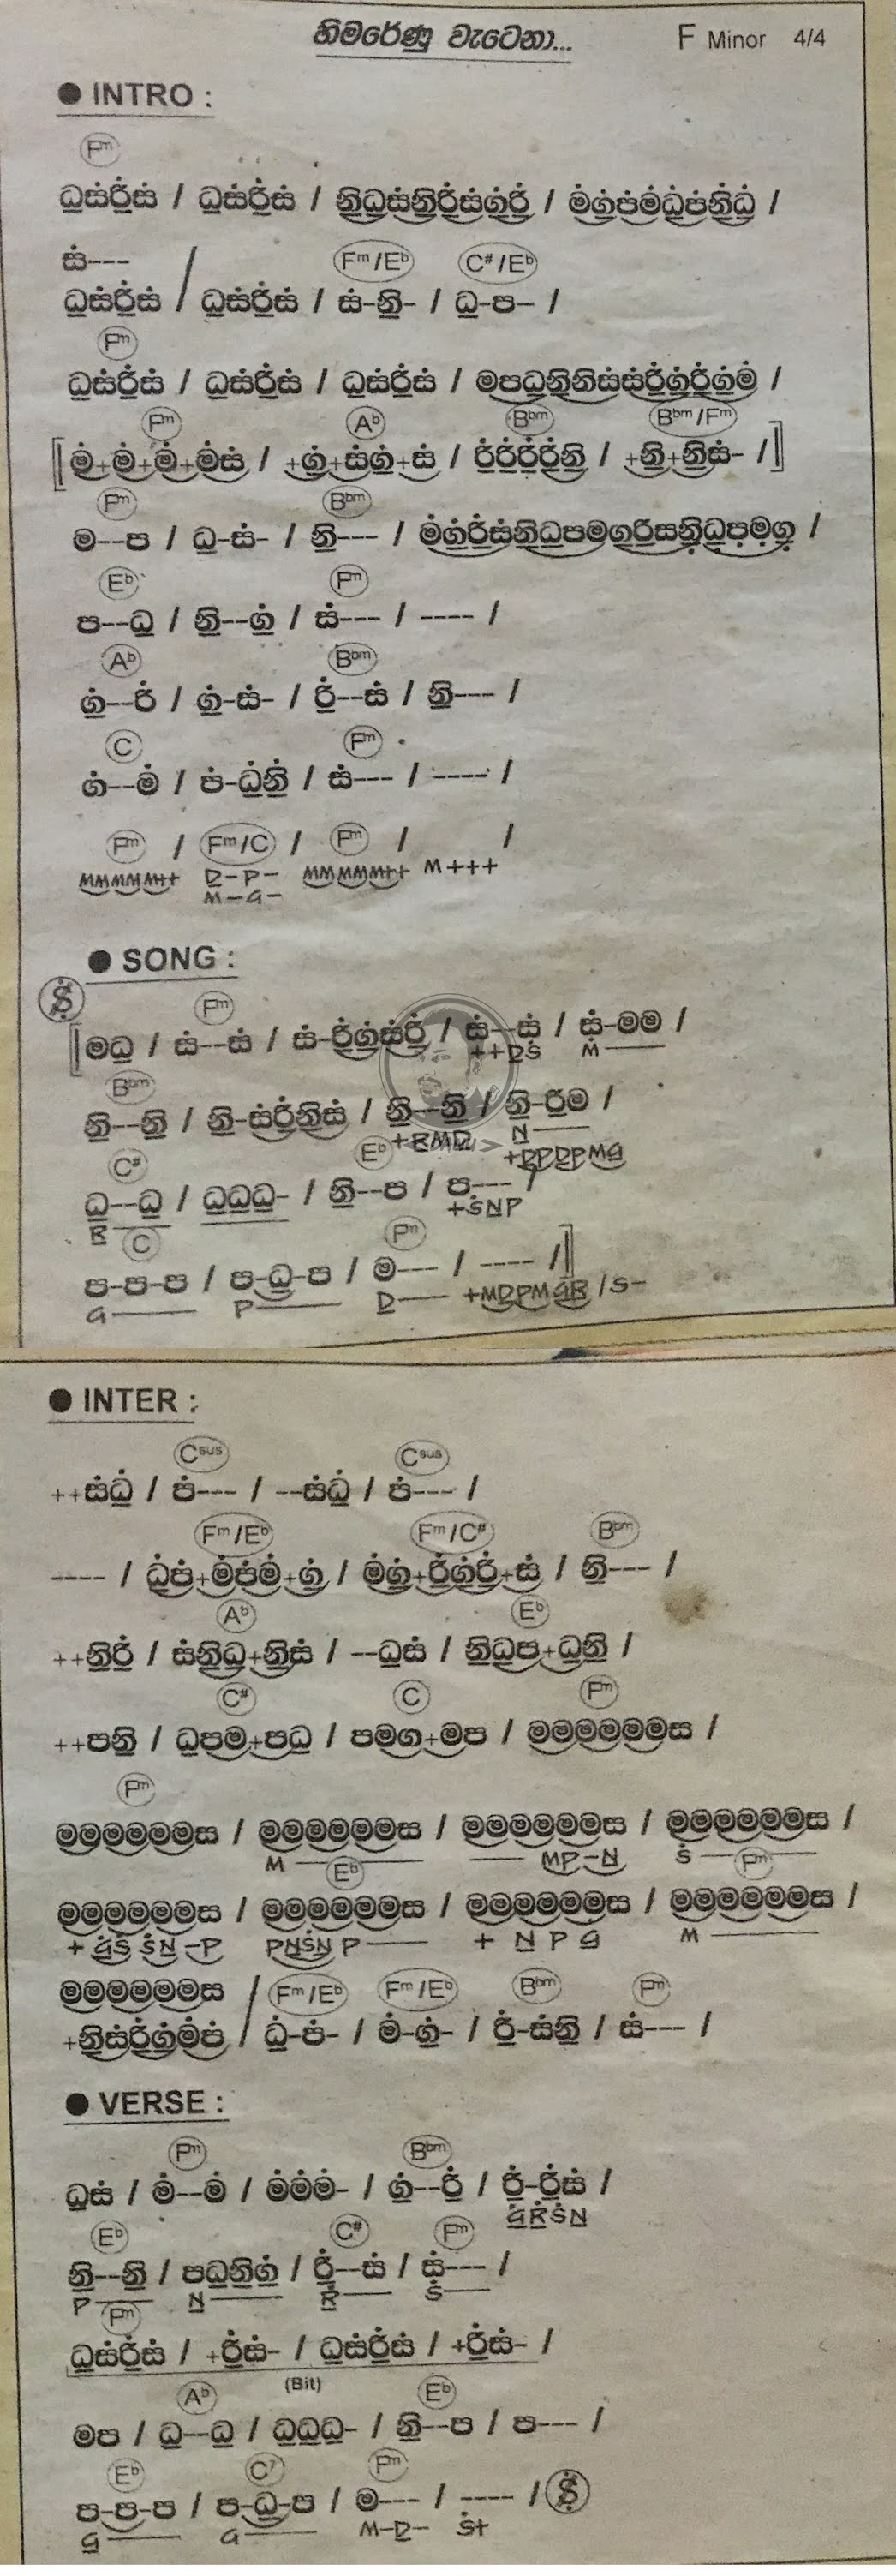 හිමරේණු වැටෙනා... F Minor 4/4
● INTRO :
Fm
ධ̱සං̇රි̱̇ස̇ / ධ̱ස̇රි̱̇ස̇ / නි̱ධ̱ස̇නි̱රි̱̇ස̇ග̱̇රි̱̇ / ම̇ග̱̇ප̇ම̇ධ̱̇ප̇නි̱̇ධ̱̇ /
ස̇---
Fm/Eb C#/Eb
ධ̱ස̇රි̱̇ස̇ / ධ̱ස̇රි̱̇ස̇ / ස̇-නි̱- / ධ̱-ප- /
Fm
ධ̱ස̇රි̱̇ස̇ / ධ̱ස̇රි̱̇ස̇ / ධ̱ස̇රි̱̇ස̇ / මපධ̱නි̱නිස̇ස̇රි̱̇ග̱̇රි̱̇ග̱̇ම̇ /
Fm Ab Bbm Bbm/Fm
[ම̇+ම̇+ම̇+ම̇ස̇ / +ග̱̇+ස̇ග̱̇+ස̇ / රි̱̇රි̱̇රි̱̇රි̱̇නි̱ / +නි̱+නි̱ස̇- /]
Fm Bbm
ම--ප / ධ̱-ස̇- / නි̱--- / ම̇ග̱̇රි̱̇ස̇නි̱ධ̱පමග̱රි̱සනි̣̱ධ̣̱ප̣ම̣ග̣̱ /
Eb Fm
ප--ධ̱ / නි̱--ග̱̇ / ස̇--- / ---- /
Ab Bbm
ග̱̇--රි̇ / ග̱̇-ස̇- / රි̱̇--ස̇ / නි̱--- /
C Fm
ග̇--ම̇ / ප̇-ධ̱̇නි̱̇ / ස̇--- / ---- /
Fm / Fm/C / Fm / /
MMMMMM++ Ḏ-P- MMMMMM++ M+++
M-G-
● SONG :
$ Fm
[මධ̱ / ස̇--ස̇ / ස̇-රි̱̇ග̱̇ස̇රි̱̇ / ස̇--ස̇ / ස̇-මම /
++ḎṠ M
Bbm
නි̱--නි̱ / නි̱-ස̇රි̱̇නි̱ස̇ / නි̱--නි̱ / නි̱-රි̱ම /
+ṞMḎ Ṉ
+ḎPḎPMG̱
C# Eb
ධ̱--ධ̱ / ධ̱ධ̱ධ̱- / නි̱--ප / ප--- /
Ṟ +ṠṈP
C Fm
ප-ප-ප / ප-ධ̱-ප / ම--- / ---- /]
G P Ḏ +MḎPMG̱Ṟ /S-
● INTER :
Csus Csus
++ස̇ධ̱̇ / ප̇--- / --ස̇ධ̱̇ / ප̇--- /
Fm/Eb Fm/C# Bbm
---- / ධ̱̇ප̇+ම̇ප̇ම̇+ග̱̇ / ම̇ග̱̇+රි̱̇ග̱̇රි̱̇+ස̇ / නි̱--- /
Ab Eb
++නි̱රි̱̇ / ස̇නි̱ධ̱+නි̱ස̇ / --ධ̱ස̇ / නි̱ධ̱ප+ධ̱නි̱ /
C# C Fm
++පනි̱ / ධ̱පම+පධ̱ / පමග+මප / මමමමමමස /
Fm
මමමමමමස / මමමමමමස / මමමමමමස / මමමමමමස /
M MP-Ṉ Ṡ
Eb Fm
මමමමමමස / මමමමමමස / මමමමමමස / මමමමමමස /
+ Ġ̱Ṡ ṠṈ -P PṈṠṈ P + Ṉ P G̱ M
මමමමමමස / Fm/Eb Fm/Eb Bbm Fm
+නි̱ස̇රි̱̇ග̱̇ම̇ප̇ / ධ̱̇-ප̇- / ම̇-ග̱̇- / රි̱̇-ස̇නි̱ / ස̇--- /
● VERSE :
Fm Bbm
ධ̱ස̇ / ම̇--ම̇ / ම̇ම̇ම̇- / ග̱̇--රි̱̇ / රි̱̇-රි̱̇ස̇ /
Ġ̱Ṟ̇ṠṈ
Eb C# Fm
නි̱--නි̱ / පධ̱නි̱ග̱̇ / රි̱̇--ස̇ / ස̇--- /
P Ṉ Ṟ̇ Ṡ
Fm
ධ̱ස̇රි̱̇ස̇ / +රි̱̇ස̇- / ධ̱ස̇රි̱̇ස̇ / +රි̱̇ස̇- /
(Bit)
Ab Eb
මප / ධ̱--ධ̱ / ධ̱ධ̱ධ̱- / නි̱--ප / ප--- /
Eb C7 Fm
ප-ප-ප / ප-ධ̱-ප / ම--- / ---- / $
G̱ G M-Ḏ- Ṡ+